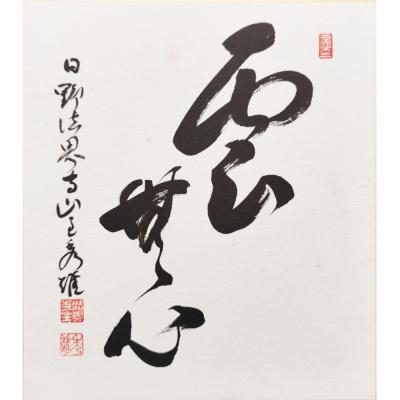 雲無心
日野法界寺山主秀雄